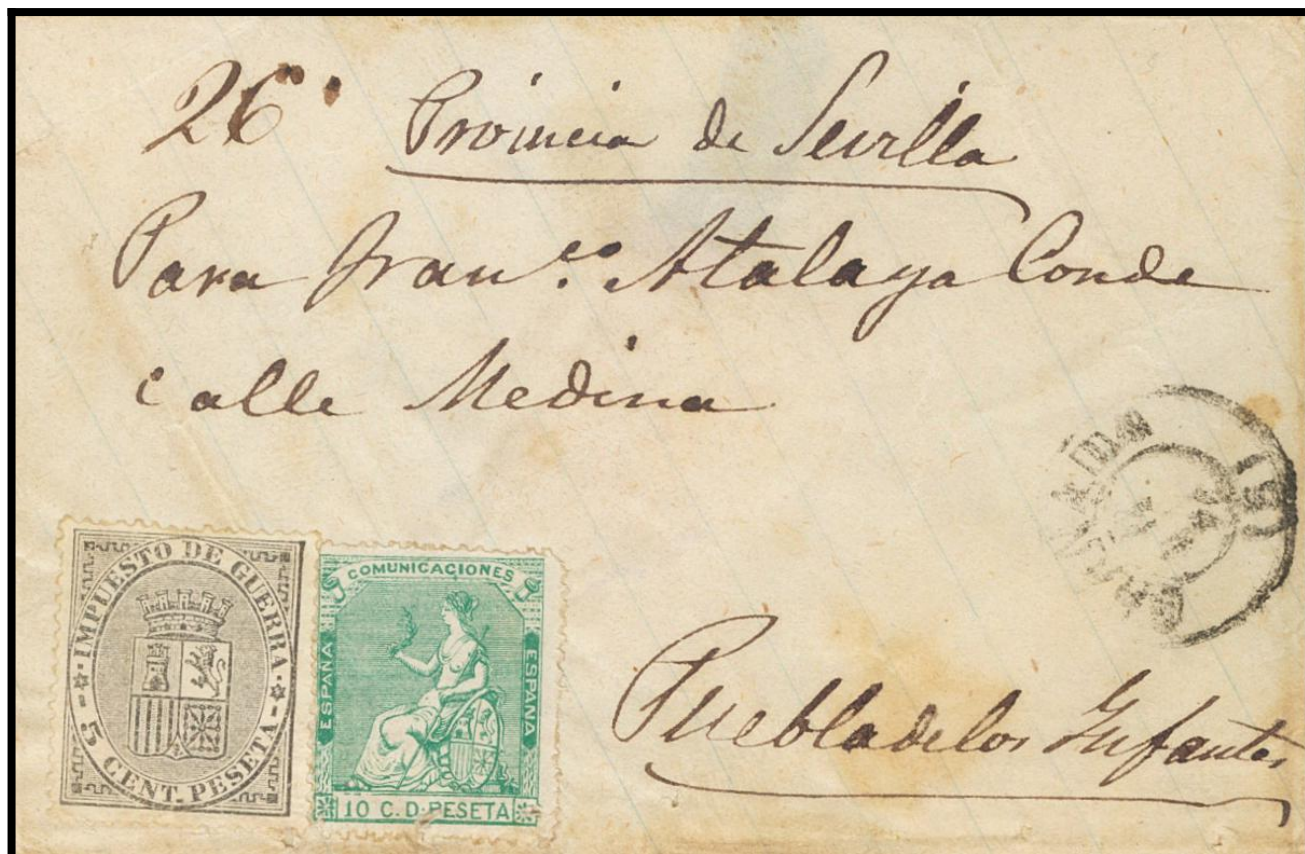 26
Provincia de Sevilla
Para Fran.co Atalaya Conde
calle Medina
Puebla de los Infantes
IMPUESTO DE GUERRA
5 CENT. PESETA
COMUNICACIONES
ESPAÑA
ESPAÑA
10 C. D. PESETA